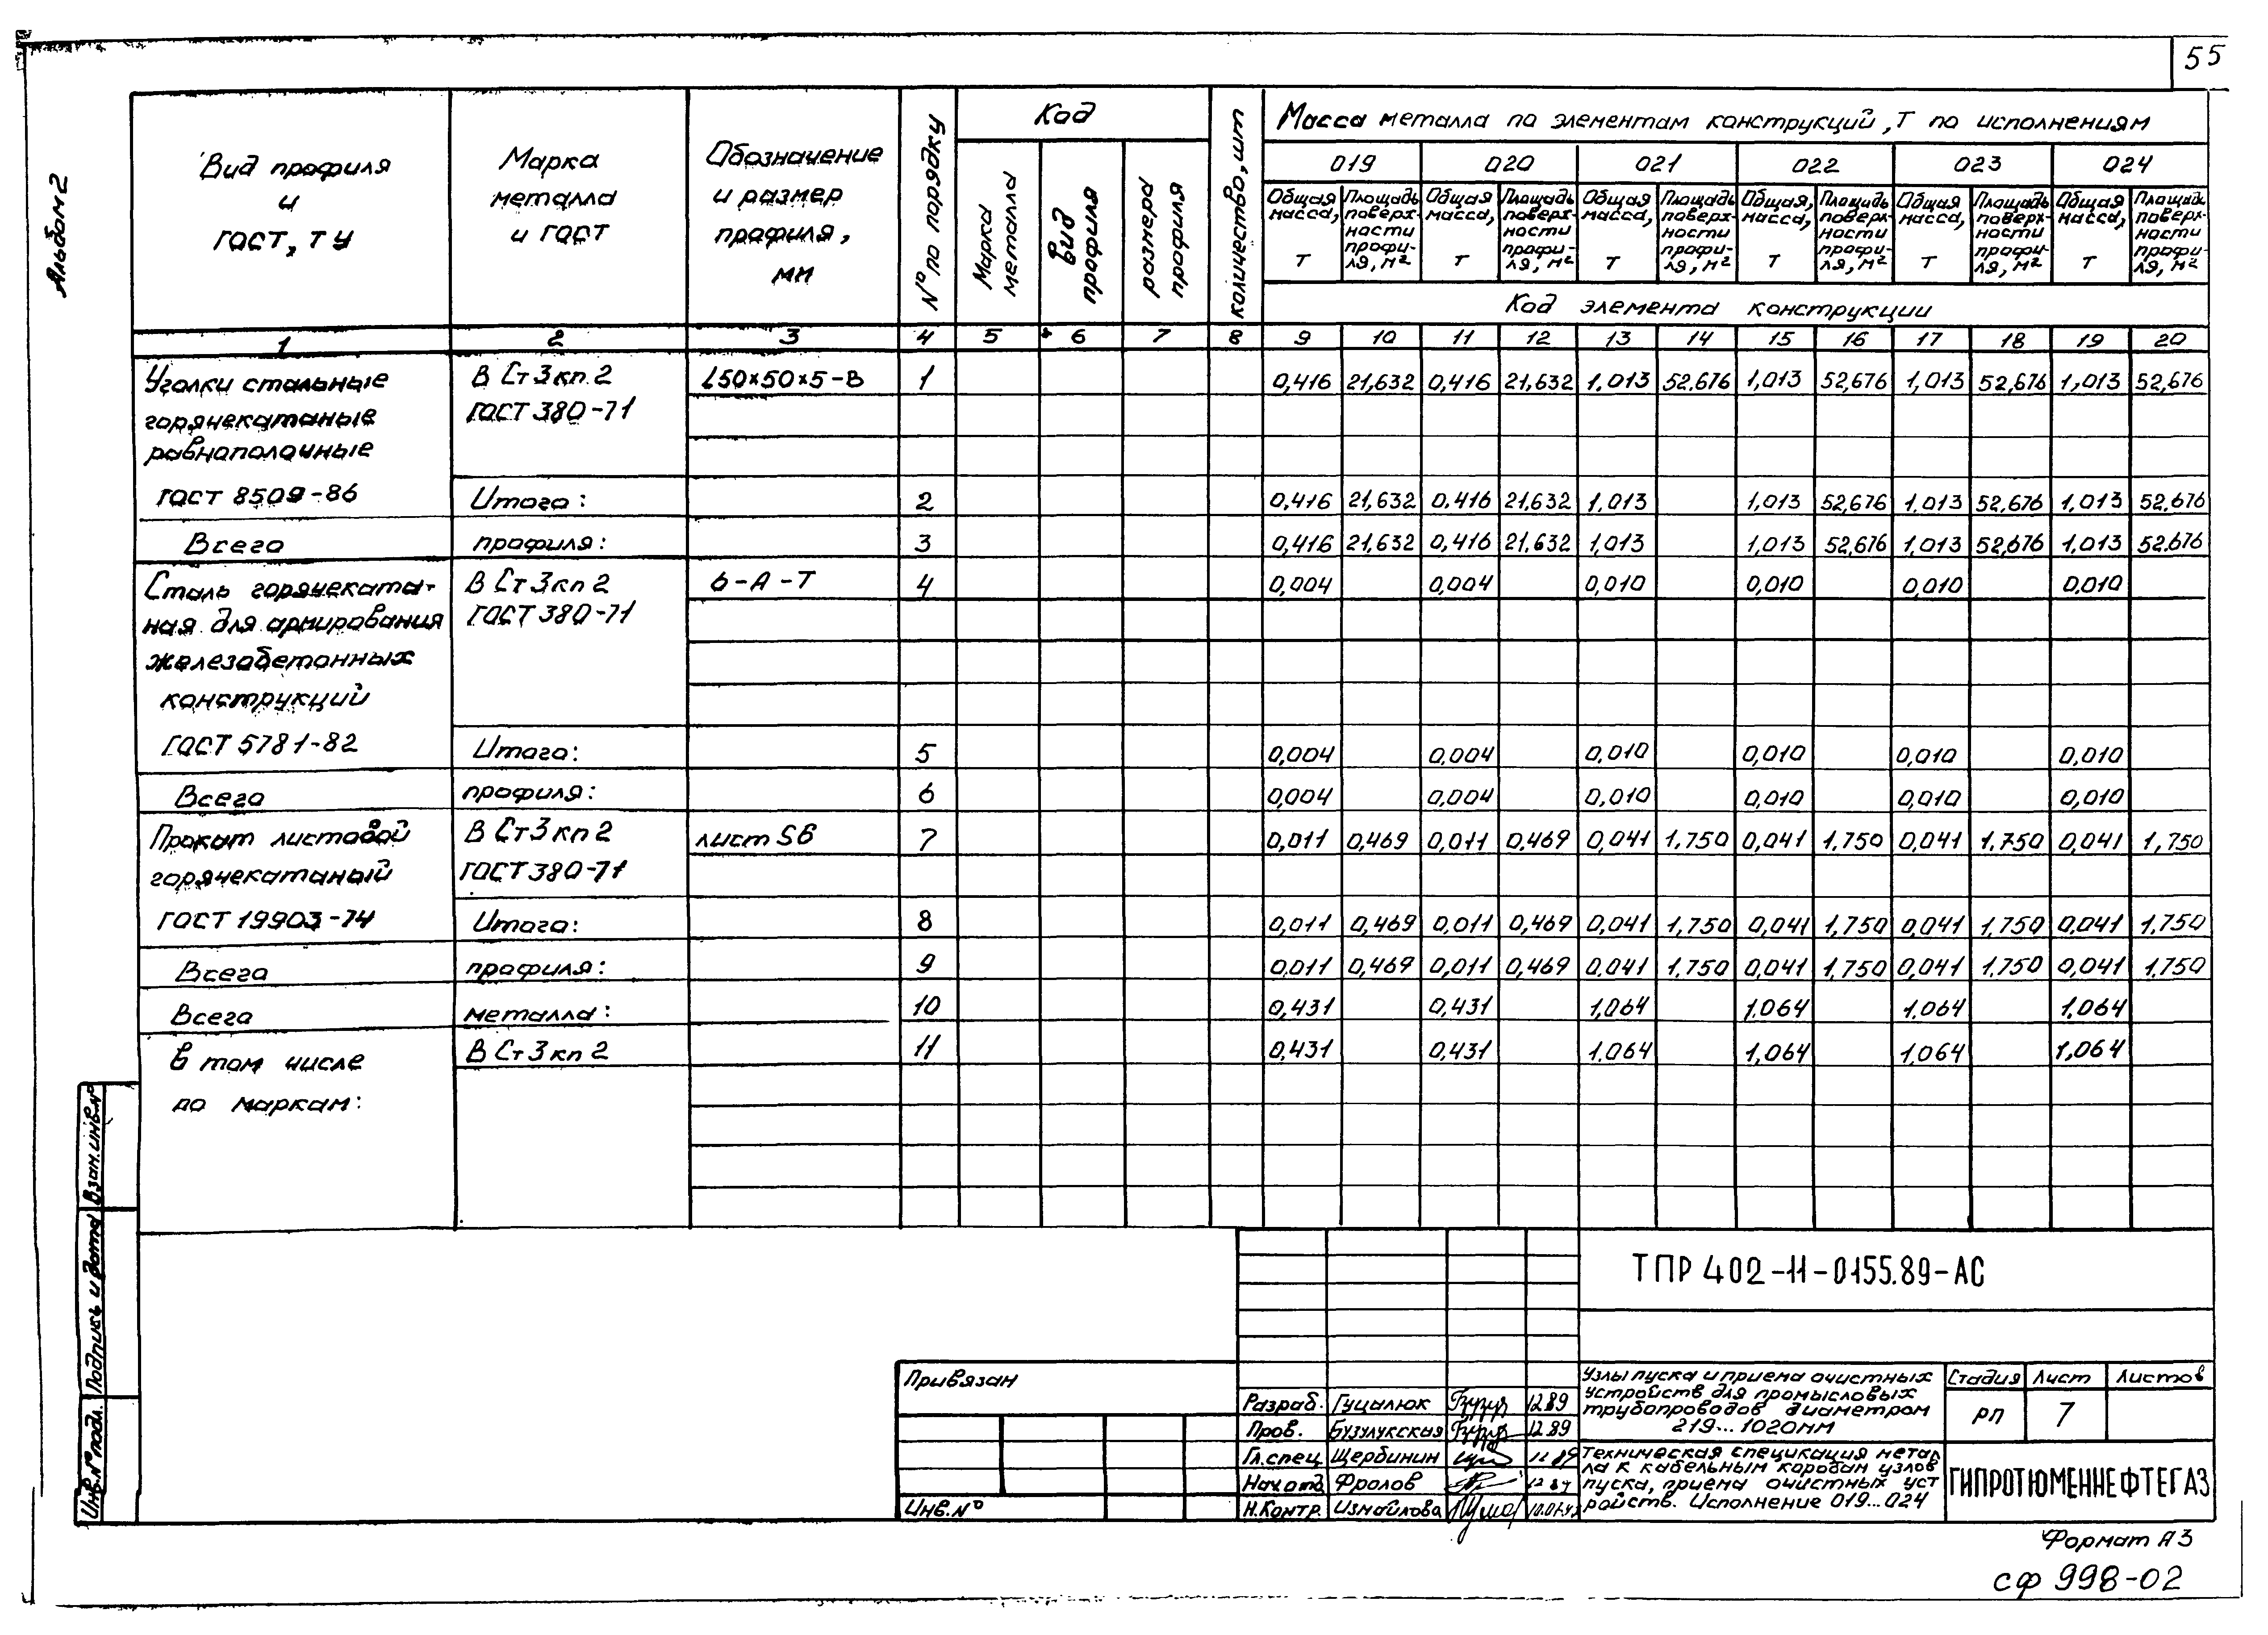 55
Альбом 2
Вид профиля и ГОСТ, ТУ
Марка металла и ГОСТ
Обозначение и размер профиля, мм
N° по порядку
Код
Марка металла
Вид профиля
размера профиля
количество, шт
Масса металла по элементам конструкций, Т по исполнениям
019 020 021 022 023 024
Общая масса, Т Площадь поверхности профиля, м² Общая масса, Т Площадь поверхности профиля, м² Общая масса, Т Площадь поверхности профиля, м² Общая масса, Т Площадь поверхности профиля, м² Общая масса, Т Площадь поверхности профиля, м² Общая масса, Т Площадь поверхности профиля, м²
Код элемента конструкции
1 2 3 4 5 6 7 8 9 10 11 12 13 14 15 16 17 18 19 20
Уголки стальные В Ст3кп.2 L50×50×5-В 1 0,416 21,632 0,416 21,632 1,013 52.676 1,013 52,676 1,013 52,676 1,013 52,676
горячекатаные ГОСТ 380-71
равнополочные
ГОСТ 8509-86 Итого: 2 0,416 21,632 0,416 21,632 1,013 1,013 52,676 1,013 52,676 1,013 52,676
Всего профиля: 3 0,416 21,632 0,416 21.632 1,013 1,013 52,676 1,013 52,676 1,013 52.676
Сталь горячеката- В Ст3кп2 6-А-Т 4 0,004 0,004 0,010 0,010 0,010 0,010
ная для армирования ГОСТ 380-71
железобетонных
конструкций
ГОСТ 5781-82 Итого: 5 0,004 0,004 0,010 0,010 0,010 0,010
Всего профиля: 6 0,004 0,004 0,010 0,010 0,010 0,010
Прокат листовой В Ст3кп2 лист S6 7 0,011 0,469 0,011 0,469 0,041 1,750 0,041 1,750 0,041 1,750 0,041 1,750
горячекатаный ГОСТ 380-71
ГОСТ 19903-74 Итого: 8 0,011 0,469 0,011 0,469 0,041 1,750 0,041 1,750 0,041 1,750 0,041 1,750
Всего профиля: 9 0,011 0,469 0,011 0,469 0,041 1,750 0,041 1,750 0,041 1,750 0,041 1,750
Всего металла: 10 0,431 0,431 1,064 1,064 1,064 1,064
в том числе В Ст3кп2 11 0,431 0,431 1.064 1,064 1,064 1,064
по маркам:
Взам.инв.№
Подпись и дата
Инв.№ подл.
ТПР 402-11-0155.89-АС
Привязан
Инв.№
Разраб. Гуцалюк 12.89
Пров. Бузулукская 12.89
Гл.спец Щербинин
Нач.отд Фролов 12 89
Н.Контр. Измайлова
Узлы пуска и приема очистных
устройств для промысловых
трубопроводов диаметром
219...1020мм
Стадия Лист Листов
РП 7
Техническая специкация метал
ла к кабельным коробам узлов
пуска, приема очистных уст
ройств. Исполнение 019...024
ГИПРОТЮМЕННЕФТЕГАЗ
Формат А3
сф 998-02